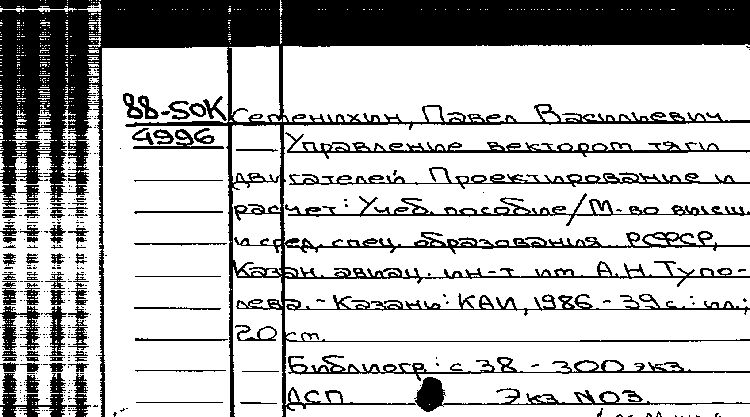 88-50К Сетенихин, Павел Васильевич
4996 Управление вектором тяги
двигателей. Проектирование и
расчет: Учеб. пособие/М-во высш.
и сред. спец. образования РСФСР,
Казан. авиац. ин-т им. А.Н. Тупо-
лева. - Казань: КАИ, 1986. - 39 с.: ил.;
20 см.
Библиогр: с 38 - 300 экз.
ДСП. Экз. N03.